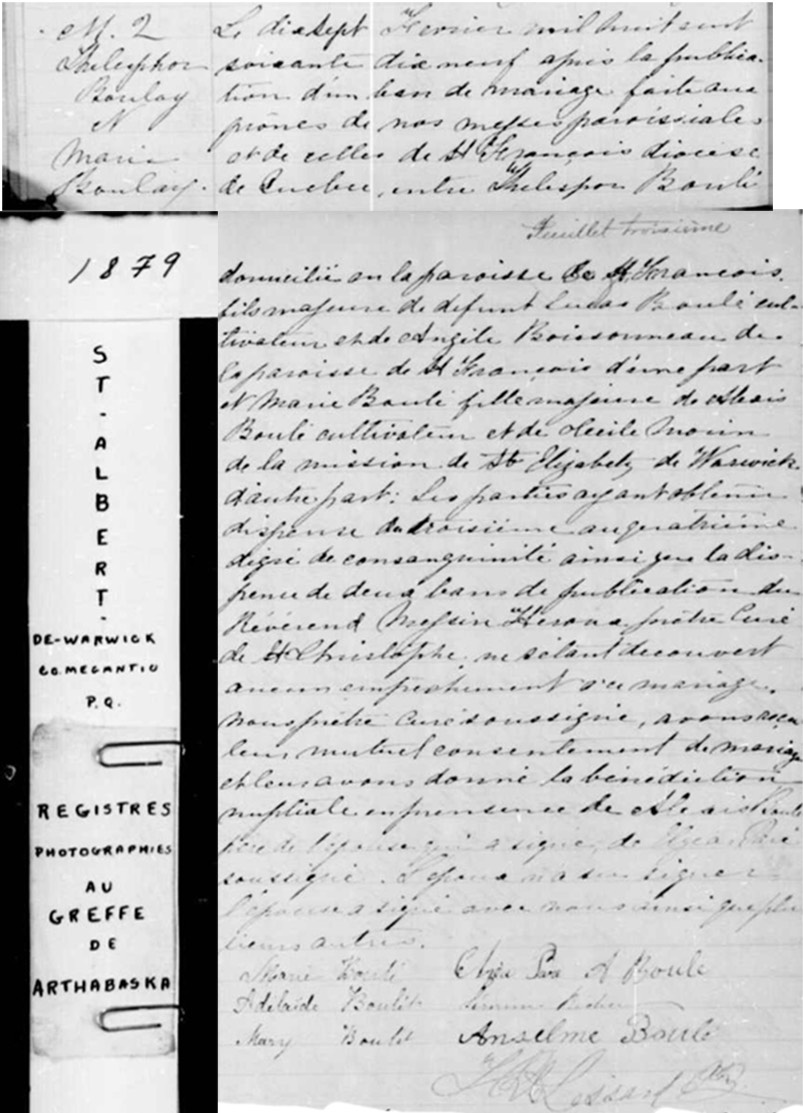 M. 2
Thelesphor
Boulay
N
Marie
Boulay.
Le dix sept Fevrier mil huit cent
soixante dix neuf après la publica-
tion d'un ban de mariage faite aux
prônes de nos messes paroissiales
et de celles de St François diocese
de Quebec, entre Thelespor Boulé
Feuillet troisième
domicilié en la paroisse de St François.
fils majeure de defunt Lucas Boulé cul-
tivateur et de Angèle Boissonneau de
la paroisse de St François d'une part
et Marie Boulé fille majeure de Alexis
Boulé cultivateur et de Cecile Morin
de la mission de Ste Elizabeth de Warwick
d'autre part: Les parties ayant obtenu
dispense du troisième au quatrième
degré de consanguinité ainsi que la dis-
pense de deux bans de publication du
Révérend Messire Héroux prêtre Curé
de St Christophe, ne s'étant decouvert
aucun empêchement au mariage,
Nous prêtre Curé soussigné, avons reçu
leur mutuel consentement de mariage
et leur avons donné la bénédiction
nuptiale en prensence de Alexis Boulé
père de l'épouse qui a signé, de
soussigné. L'époux n'a su signer
l'épouse a signé avec nous ainsi que plu-
sieurs autres.
Marie Boulé A Boulé
Adelaide Boulet
Mary Boulet Anselme Boulé
Lessard Ptre
1879
ST-ALBERT-
DE-WARWICK
CO. MEGANTIC
P.Q.
REGISTRES
PHOTOGRAPHIES
AU
GREFFE
DE
ARTHABASKA